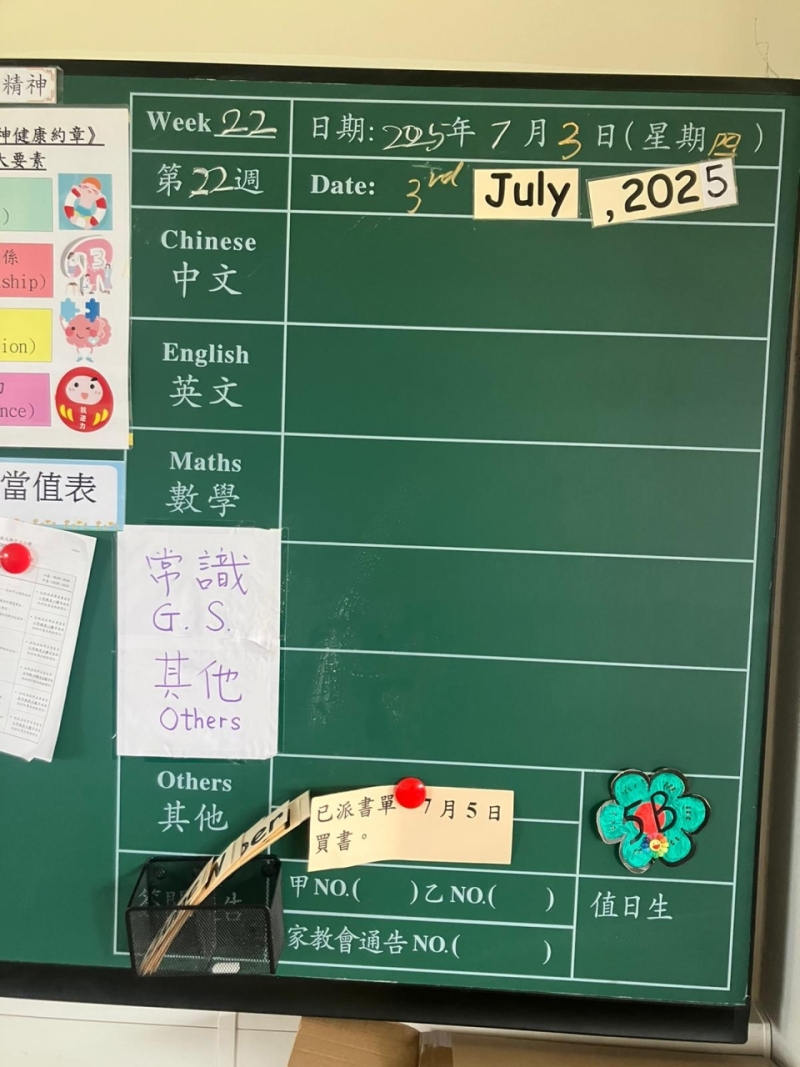 精神
神健康約章》
大要素
)
係
ship)
ion)
力
nce)
當值表
Week 22
日期: 2025年 7 月 3 日(星期四)
第22週
Date: 3rd July , 2025
Chinese
中文
English
英文
Maths
數學
常識
G. S.
其他
Others
Others
其他
已派書單 7月5日
買書。
5B
甲NO.( )乙NO.( )
家教會通告NO.( )
值日生